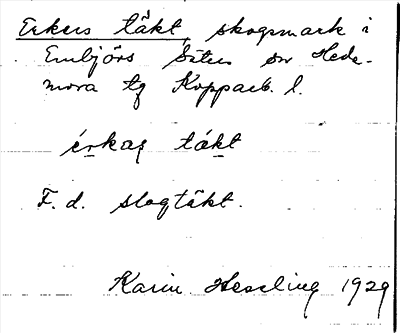 Erkers täkt, skogsmark i
Embjörs Säter sv Hede-
mora tg Kopparb. l.
érkaʂ tákt
F. d. slogtäkt.
Karin Hesseling 1929